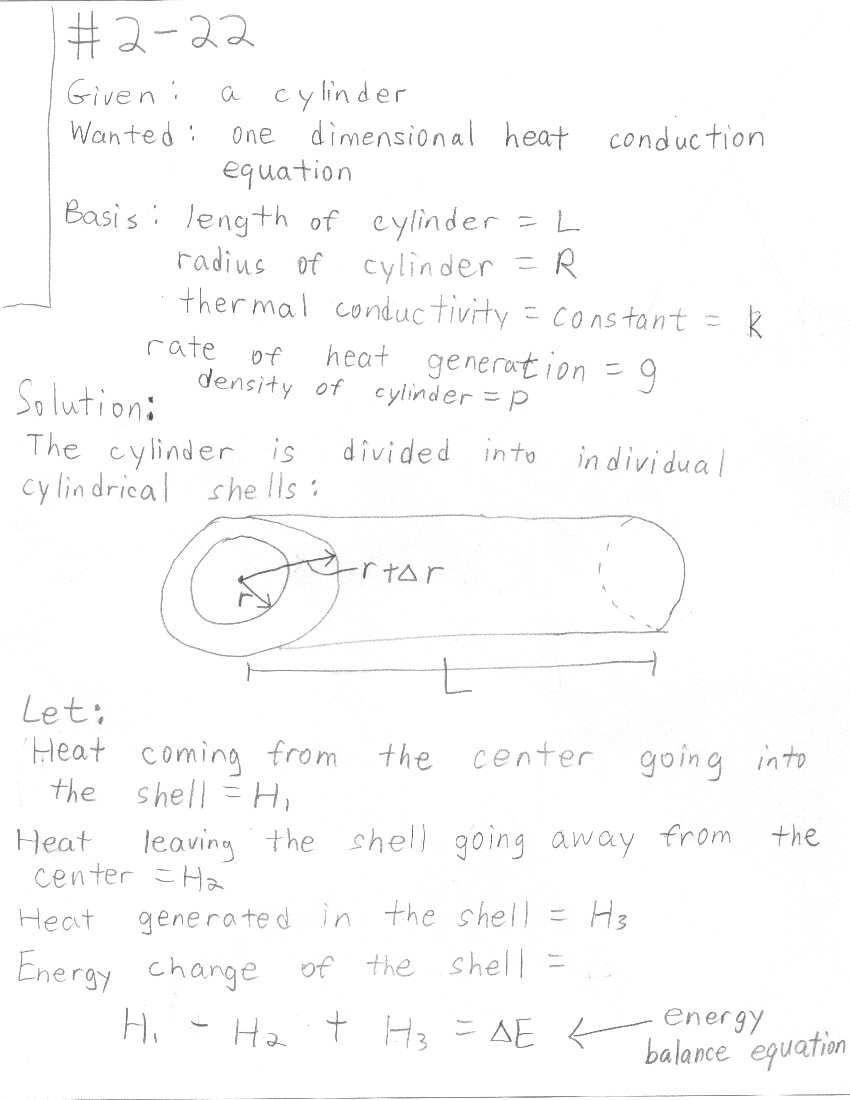 #2-22
Given: a cylinder
Wanted: one dimensional heat conduction
equation
Basis: length of cylinder = L
radius of cylinder = R
thermal conductivity = constant = k
rate of heat generation = g
density of cylinder = p
Solution:
The cylinder is divided into individual
cylindrical shells:
r+Δr
r
L
Let:
Heat coming from the center going into
the shell = H₁
Heat leaving the shell going away from the
center = H₂
Heat generated in the shell = H₃
Energy change of the shell =
H₁ - H₂ + H₃ = ΔE ← energy
balance equation